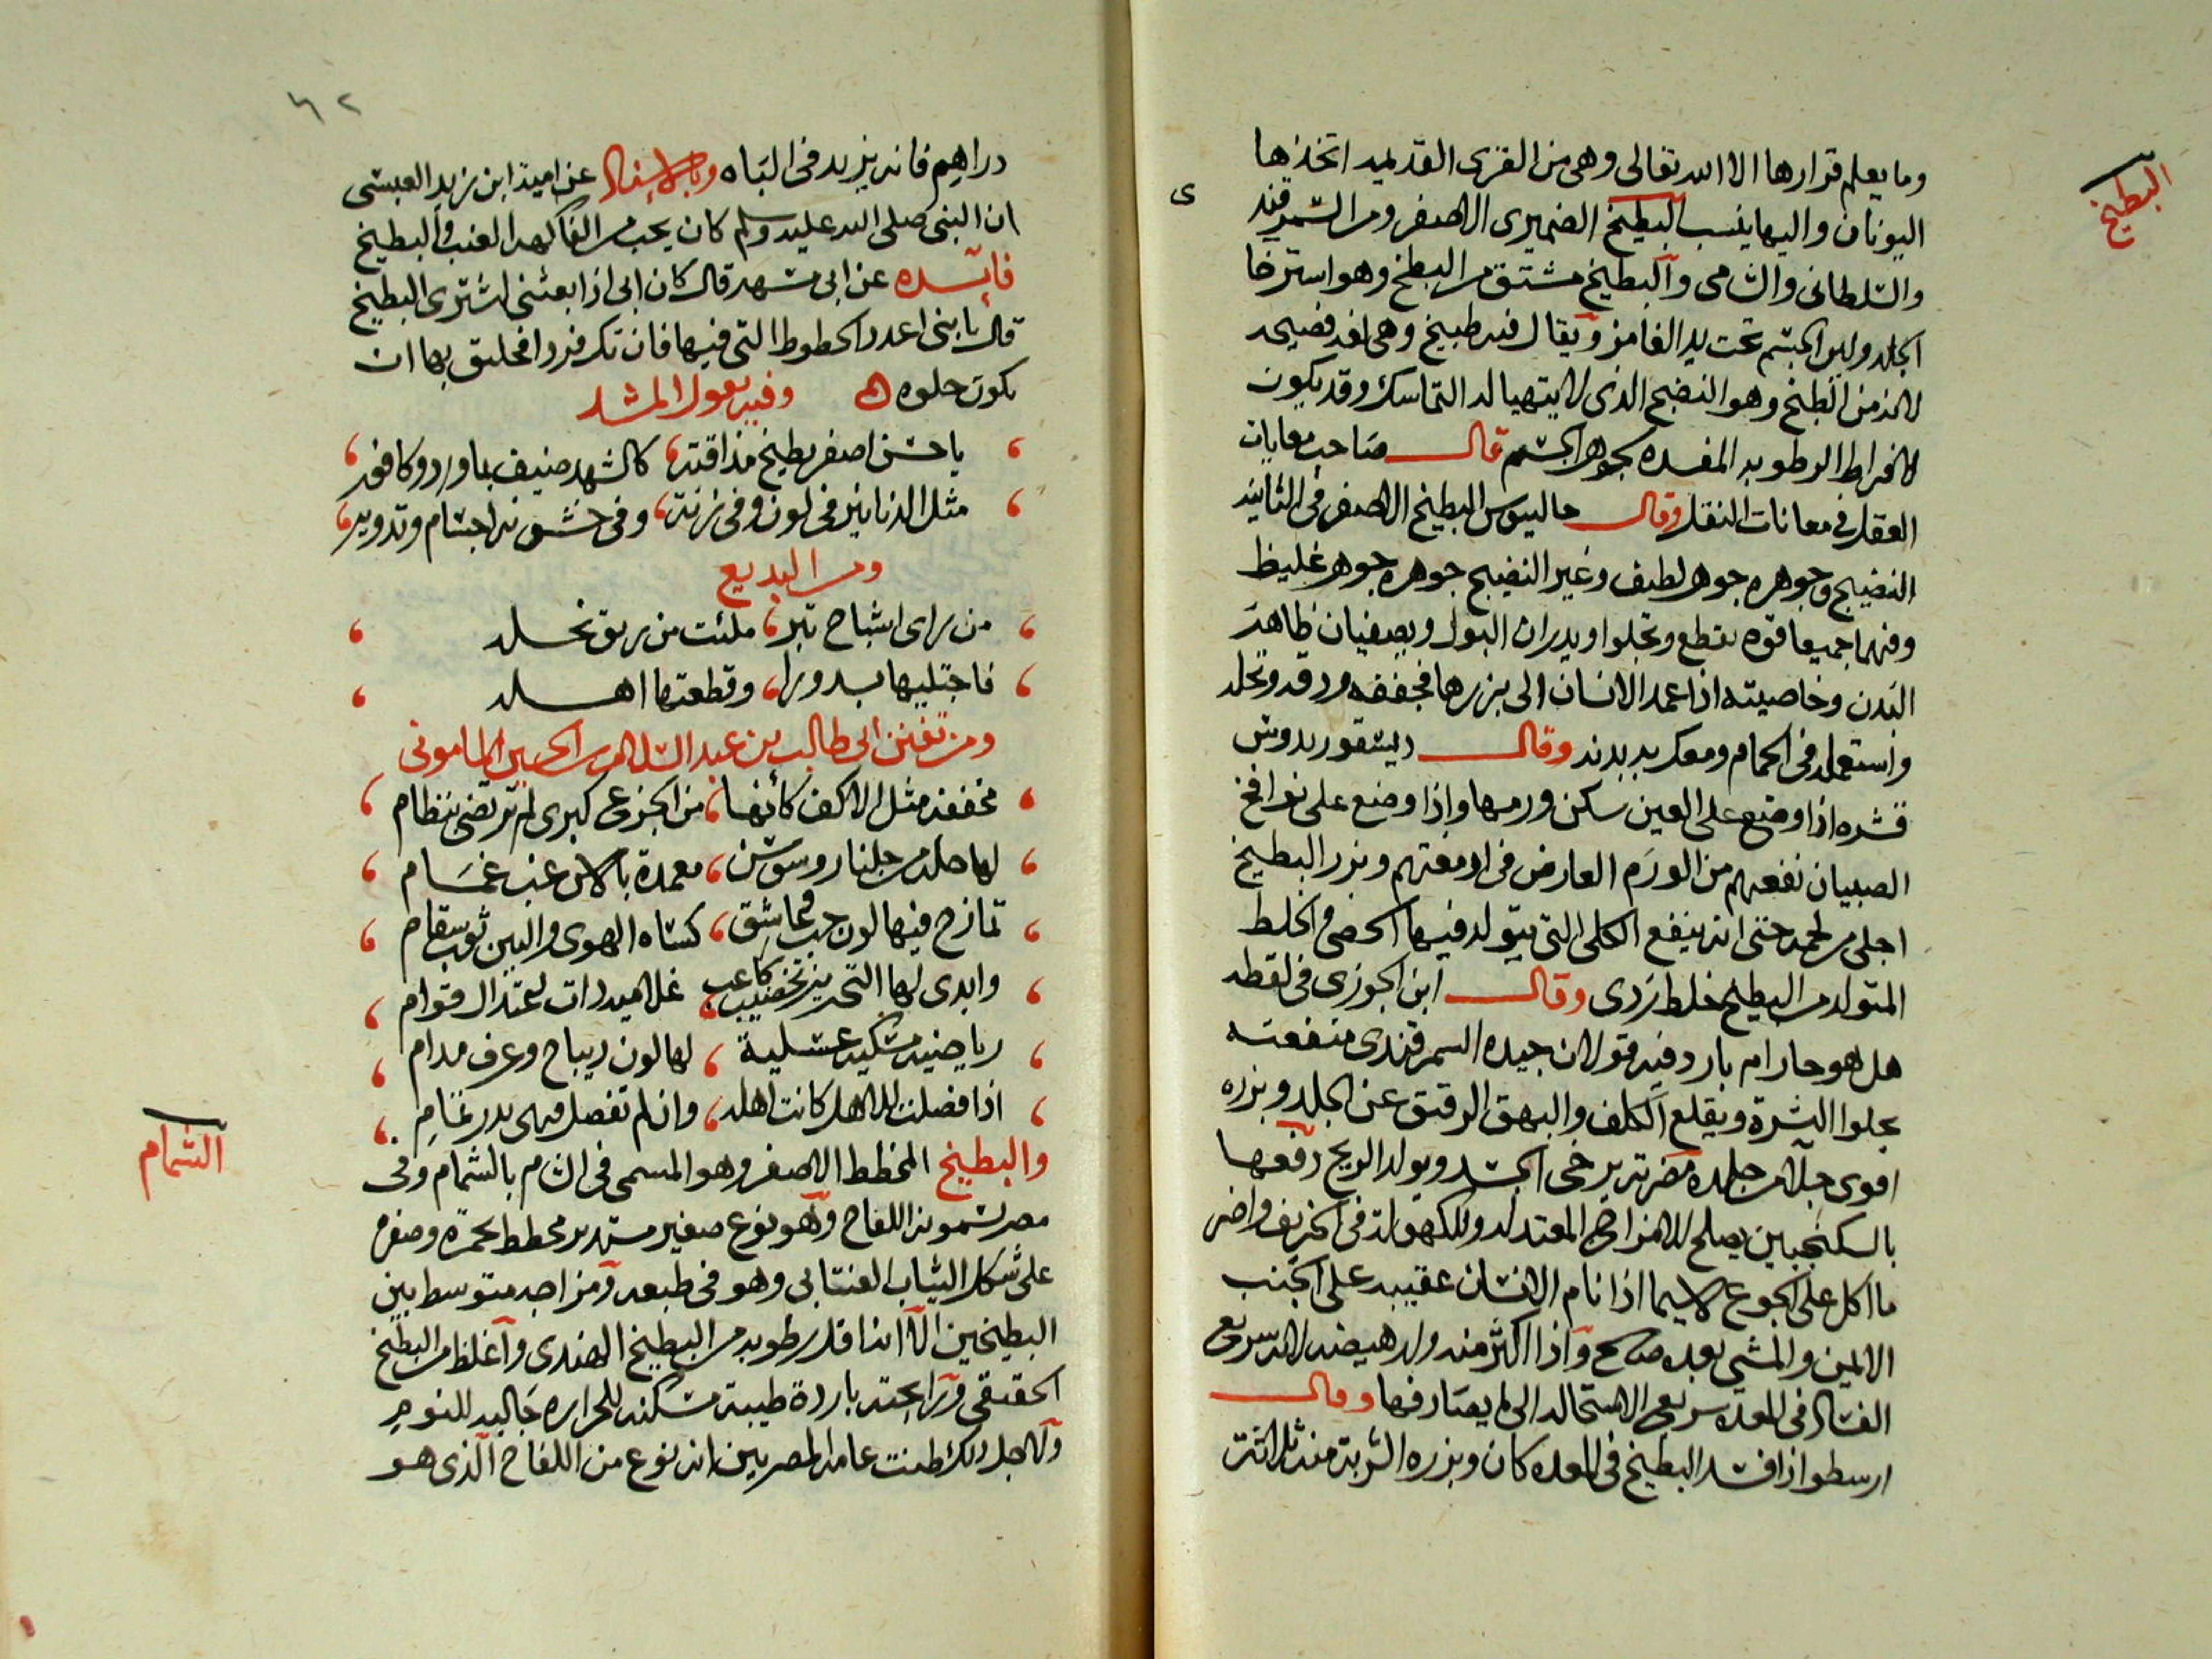 البطيخ
وما يعلم قرارها الا الله تعالى وهى من القرى القديمه اتخذها
اليونان واليها ينسب البطيخ الضميرى الاصفر ومن السمرقند
والسلطانى والشامى والبطيخ مشتق من البطخ وهو استرخا
الجلد ولين الجسم تحت يد الغامز ويقال فيه طبيخ وهى لغه فصيحه
لانه من الطبخ وهو النضج الذى لا يتهيا له التماسك وقد يكون
لافراط الرطوبه المفسده بجوهر الجسم قال صاحب معايات
العقل فى معانات النقل وقال جالينوس البطيخ الاصفر فى الثانيه
النضيج وجوهره جوهر لطيف وغير النضيج جوهره جوهر غليظ
وفيهما جميعا قوه تقطع وتجلوا ويدران البول ويصفيان ظاهر
البدن وخاصيته اذا عمد الانسان الى بزرها فجففه ودقه ونخله
واستعمله فى الحمام ومعك به بدنه وقال ديسقوريدوس
قشره اذا وضع على العين سكن ورمها واذا وضع على نوافخ
الصبيان نفعهم من الورم العارض فى ادمغتهم وبزر البطيخ
اجلى من لحمه حتى انه ينفع الكلى التى يتولد فيها الحصى والخلط
المتولد من البطيخ خلط ردى وقال ابن الجوزى فى لقطه
هل هو حار ام بارد فيه قولان جيده السمرقندى منفعته
يجلوا البشرة ويقلع الكلف والبهق الرقيق عن الجلد وبزره
اقوى جلآ من جلده مضرته يرخى الجسد ويولد الريح دفعها
بالسكنجبين يصلح للامزاج المعتدله وللكهوله فى الخريف واضر
ما اكل على الجوع لاسيما اذا نام الانسان عقيبه على الجنب
الايمن والمشى بعده صالح واذا اكثر منه ولد هيضه لانه سريع
الفساد فى المعده سريع الاستحاله الى ما يصادفها وقال
ارسطو اذا فسد البطيخ فى المعده كان وبزره الشربة منه ثلاثة
٦٢
دراهم فانه يزيد فى الباه وبالاسناد عن امية ابن زيد العبسى
ان النبى صلى الله عليه وسلم كان يحب من الفاكهه العنب والبطيخ
فايده عن ابى مسهر قال كان ابى اذا بعثنى اشترى البطيخ
قال يا بنى اعدد الخطوط التى فيها فان تكن فردا فخليق بها ان
يكون حلوه اه وفيه يعول المشد
يا حسن اصفر بطيخ مذاقته كالشهد ضيف بماورد وكافور
مثل الدنانير فى لون وفى زنة وفى خشونه اجسام وتدوير
ومن البديع
من راى اشباح تبر ملئت من ريق نحله
فاجتليها بدورا وقطعتها اهله
ومن تفنن ابى طالب بن عبد السلام بن الحسين المامونى
مخففة مثل الاكف كأنها من الجزع كبرى لم ترتضى بنظام
لها حلة من جلنار وسوسن معمدة بالاس غب غمام
تمازج فيها لون حب وعاشق كساه الهوى والبين ثوب سقام
وابدى لها التحزيز تخضيب كاعب غلا ميدرات لاعتدال قوام
رياضيه مسكيه عسلية لها لون ديباج وعرف مدام
اذا فصلت للاهل كانت اهله وان لم تفصل فهى بدر غمام
الشمام
والبطيخ المخطط الاصفر وهو المسمى فى الشام بالشمام وفى
مصر يسمونه اللفاح وهو نوع صغير مستدير مخطط بحمرة وصفره
على شكل الثياب العنتابى وهو فى طبعه ومزاجه متوسط بين
البطيخين الا انه اقل رطوبه من البطيخ الهندى واغلظ من البطيخ
الحقيقى ورايحته باردة طيبة مسكنه للحراره جالبه للنوم
ولاجل ذلك ظنت عامه المصريين انه نوع من اللفاح الذى هو